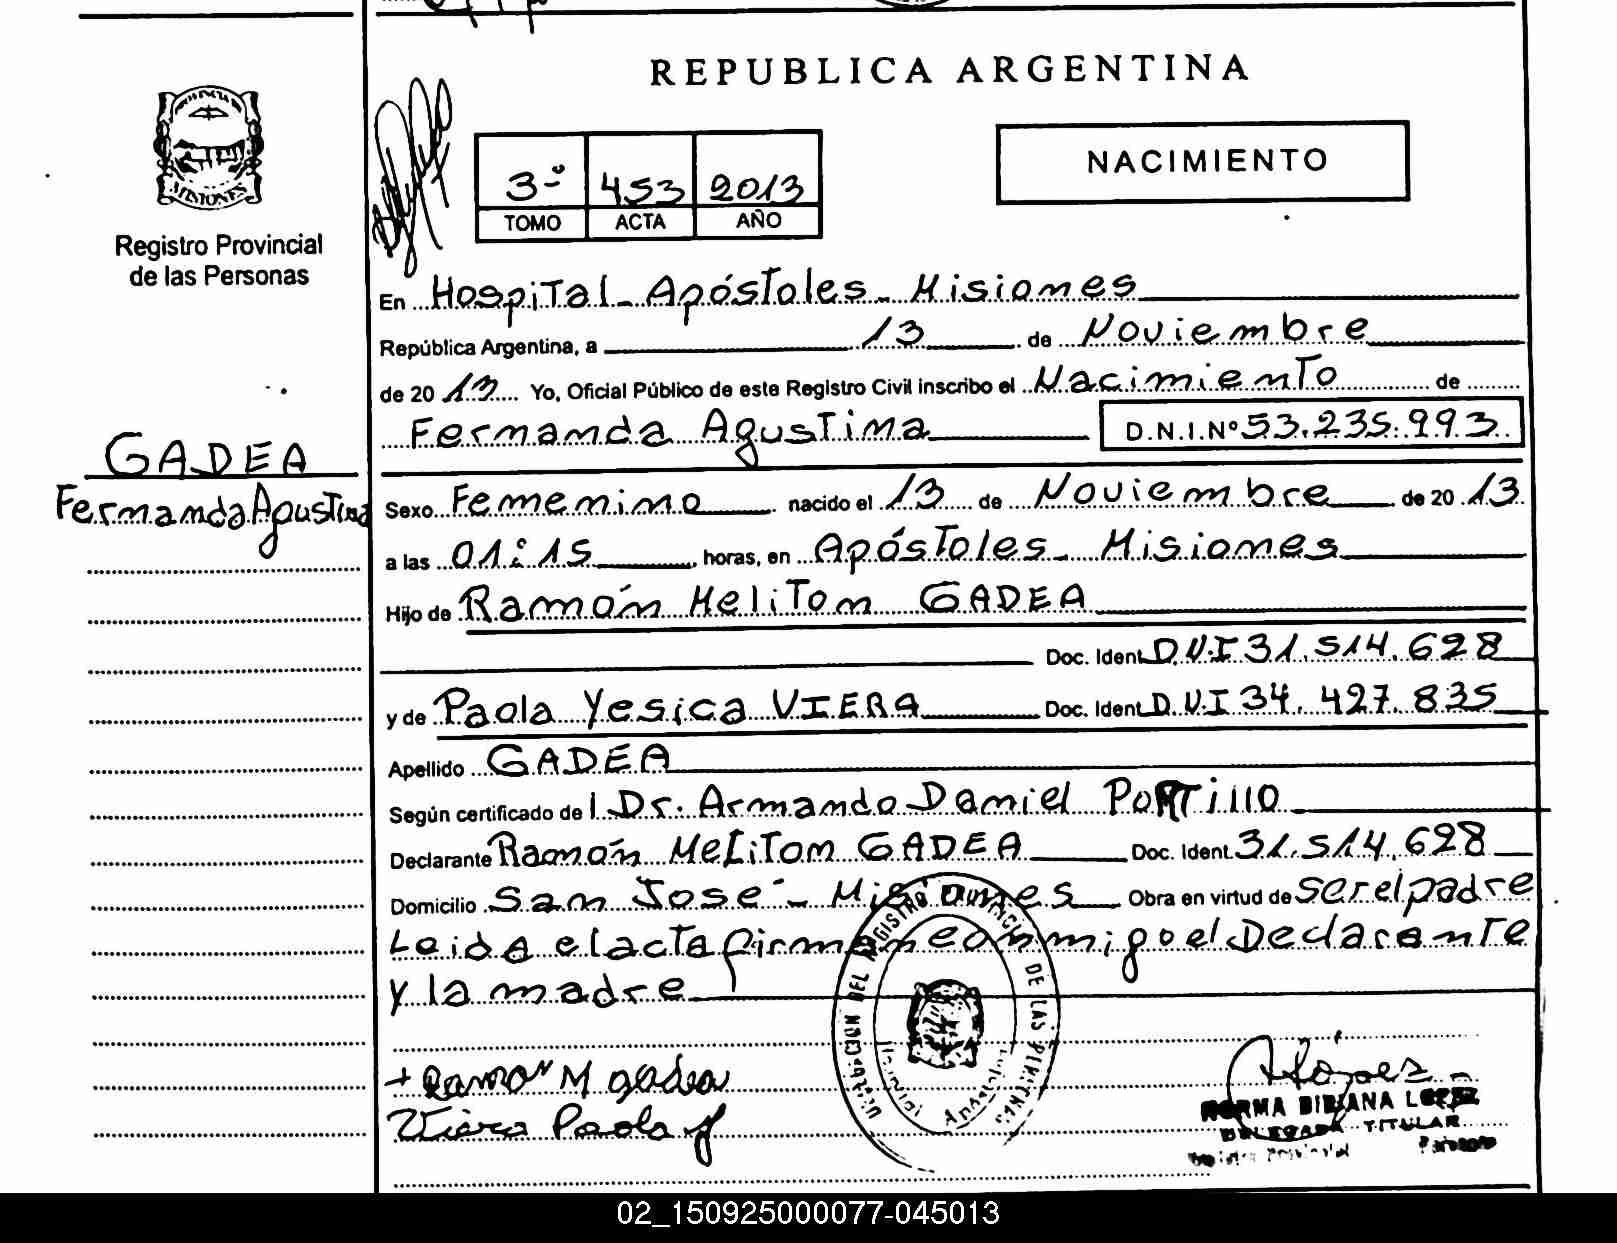 REPUBLICA ARGENTINA
PROVINCIA DE
MISIONES
Registro Provincial
de las Personas
3º 453 2013
TOMO ACTA AÑO
NACIMIENTO
En Hospital - Apóstoles - Misiones
República Argentina, a 13 de Noviembre
de 2013 Yo, Oficial Público de este Registro Civil inscribo el Nacimiento de
Fernanda Agustina D.N.I.Nº 53.235.993
GADEA
Fernanda Agustina
Sexo Femenino nacido el 13 de Noviembre de 2013
a las 01:15 horas, en Apóstoles - Misiones
Hijo de Ramón Meliton GADEA
Doc. Ident. D.N.I 31.514.628
y de Paola Yesica VIERA Doc. Ident. D.N.I 34.427.835
Apellido GADEA
Según certificado de l Dr. Armando Daniel PORTillo
Declarante Ramón Meliton GADEA Doc. Ident. 31.514.628
Domicilio San José - Misiones Obra en virtud de ser el padre
Leida el acta firman conmigo el Declarante
y la madre
DEL REGISTRO PROVINCIAL DE LAS PERSONAS
+ Ramon M gadea
Viera Paola y
López
NORMA BIBIANA LOPEZ
DELEGADA TITULAR
Registro Provincial Personas
02_150925000077-045013